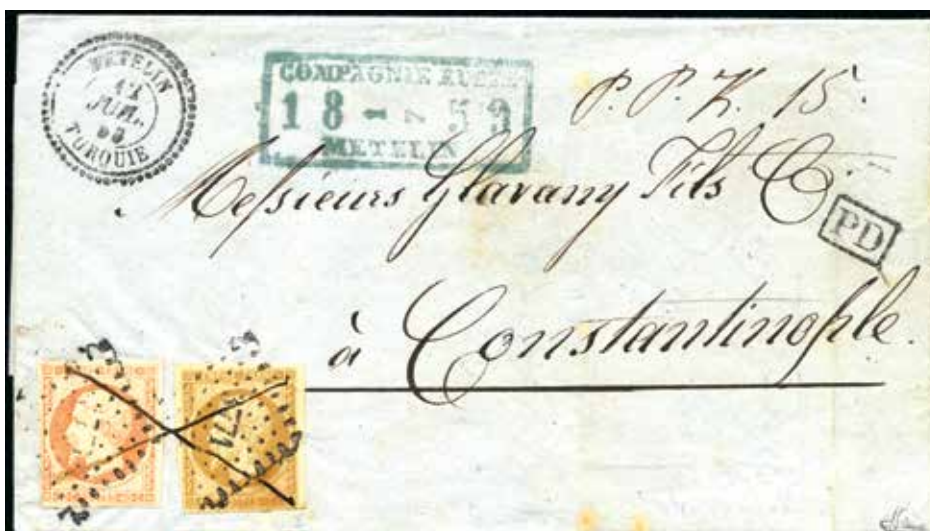 METELIN
JUIL.
TURQUIE
COMPAGNIE RUSSE
18 - 7 53
METELIN
P. P. K. 15.
Messieurs Glavany Fils & C.
PD
à Constantinople.